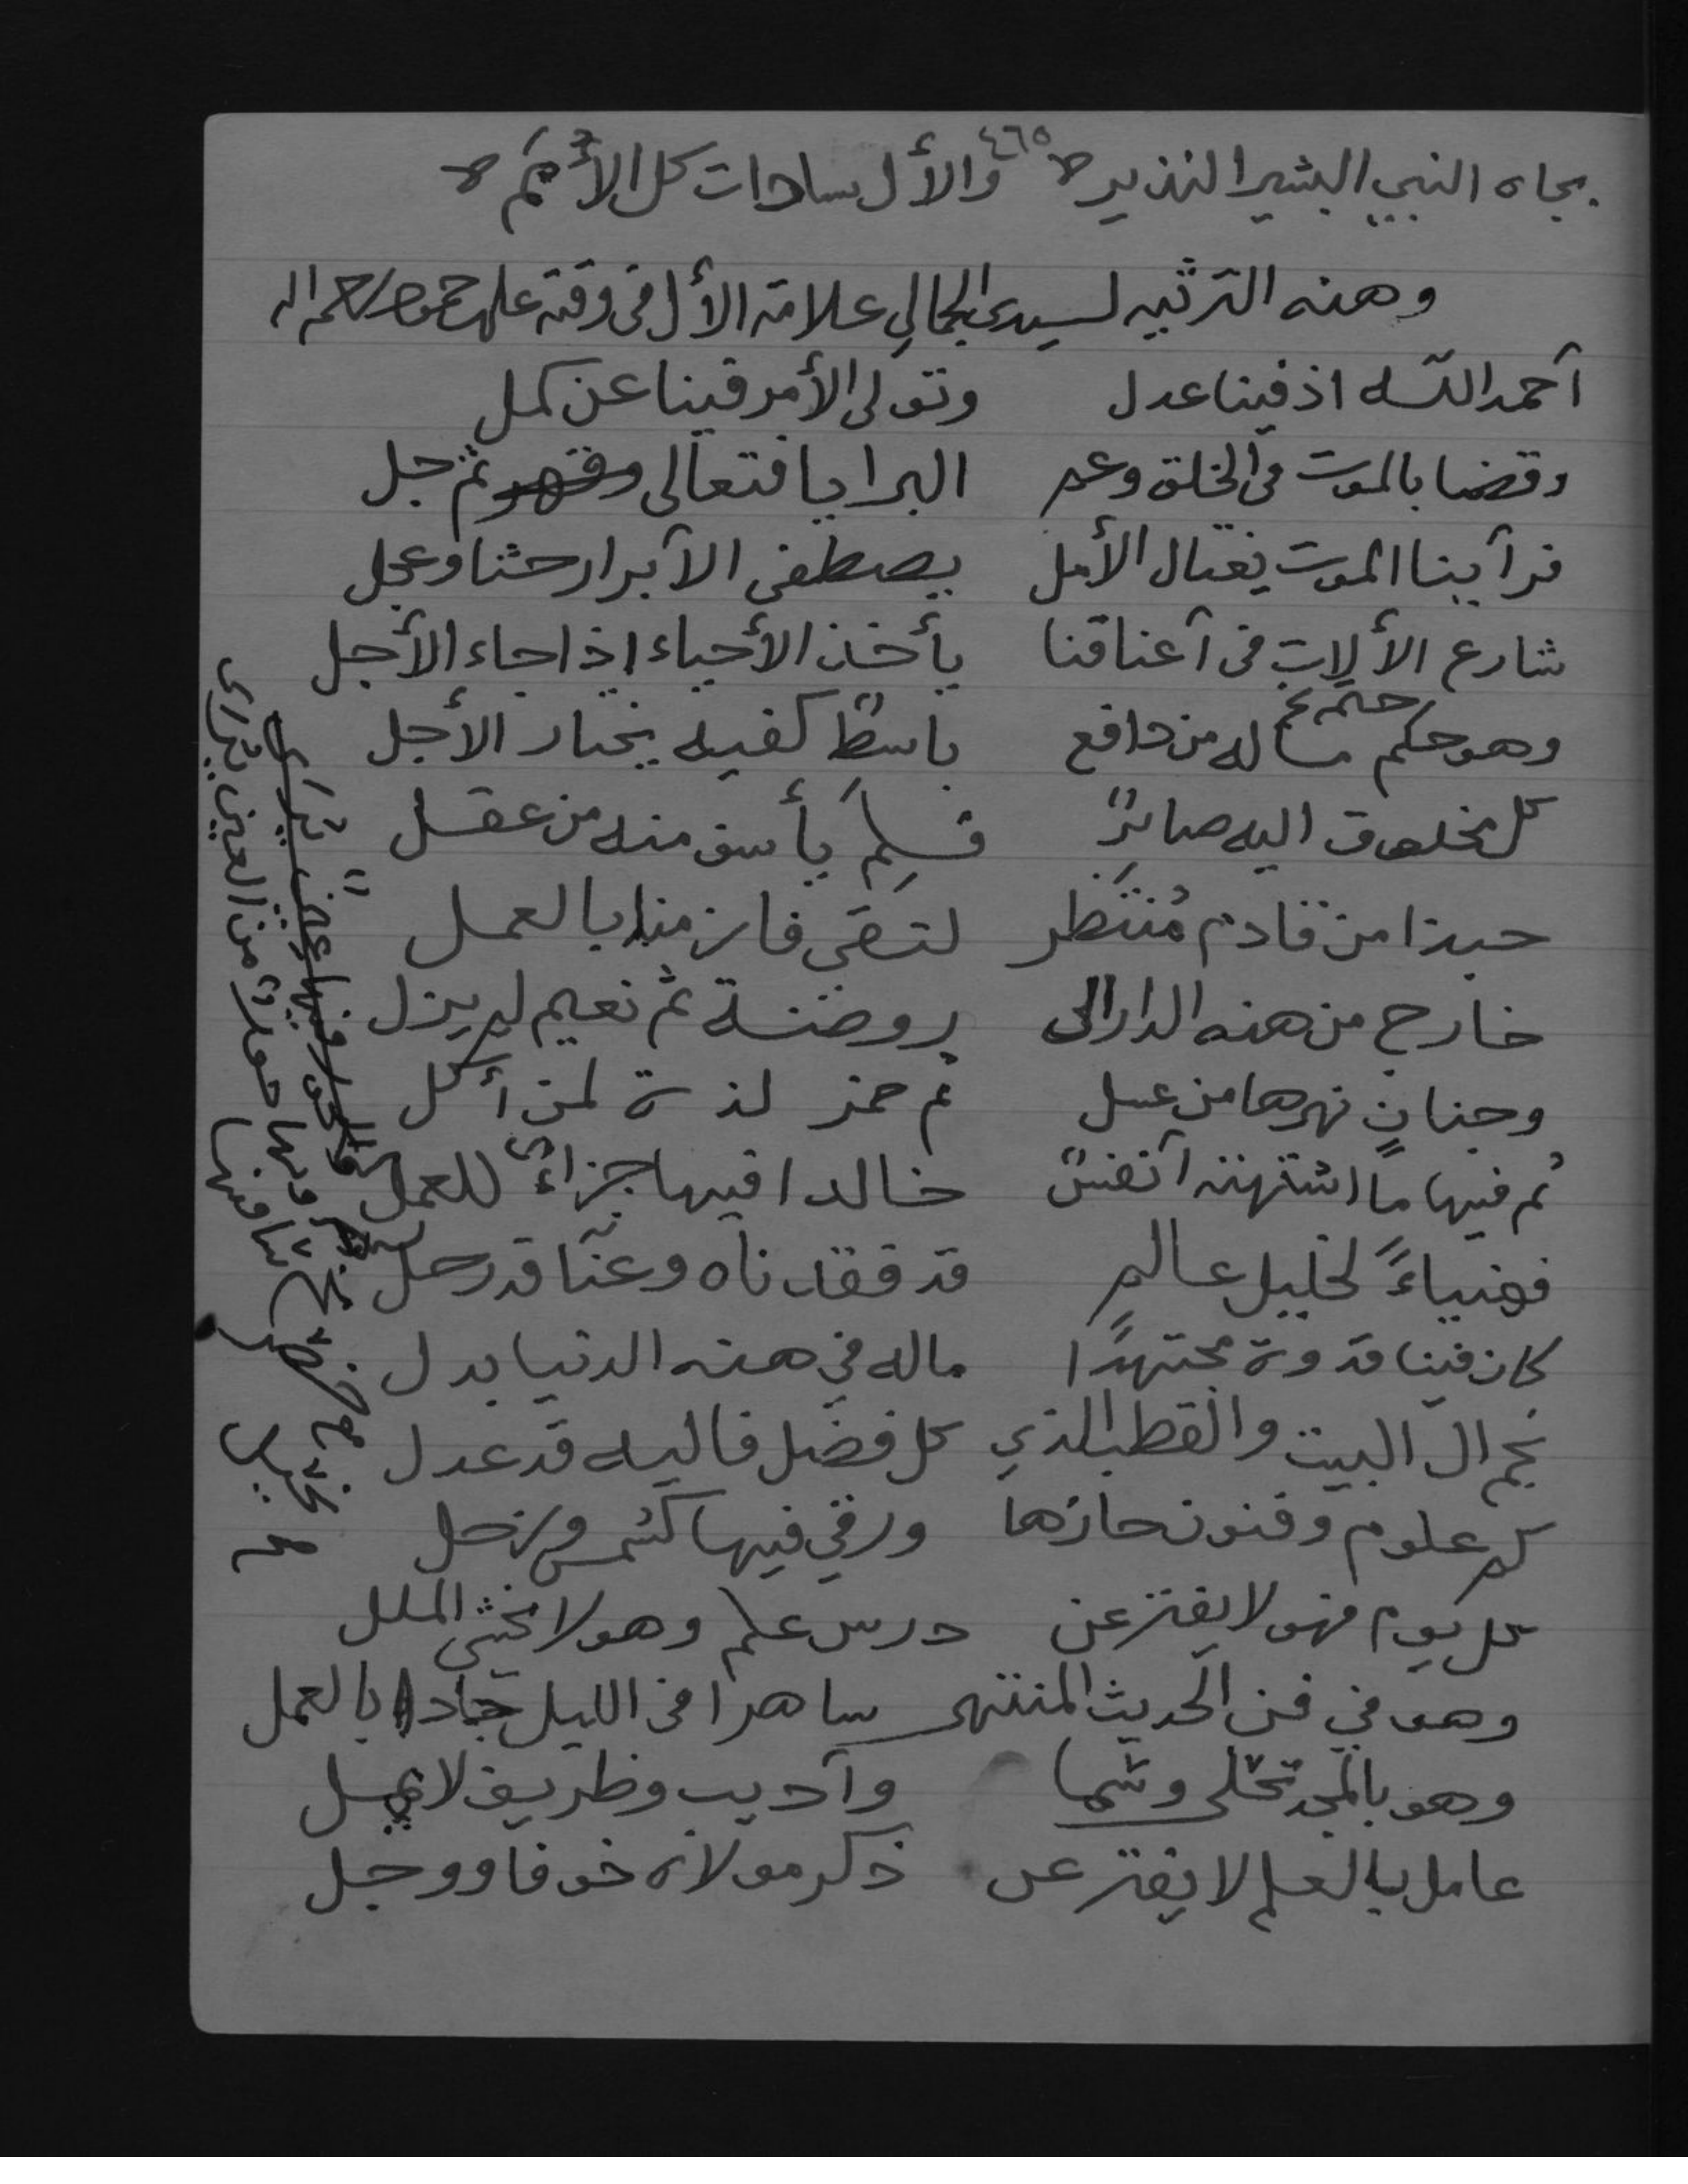 ٤٦٥
بجاه النبي البشير النذير والأل سادات كل الأمم
وهذه الترثيه لسيدى الجمالي علامة الأل في وقته على حمود رحمه الله
آحمد اللّه اذ فينا عدل وتولى الأمر فينا عن كمل
وقضا بالموت في الخلق وعم البرايا فتعالى وقهر ثم جل
فرآينا الموت يغتال الأمل يصطفى الآبرار حثنا وعجل
شارع الألات في آعناقنا يأخذ الأحياء اذا جاء الأجل
وهو حكم ماله من دافع باسطٌ كفيه يختار الأجل
حتم
كل مخلوق اليه صائرٌ فلم يأسف منه من عقل
حبذا من قادم مُنتظر لتقي فاز منا بالعمل
خارج من هذه الدار الى روضة ثم نعيم لم يزل
وجنانٍ نهرها من عسل ثم خمر لذة لمن أكل
ثم فيها ما اشتهته آنفسٌ خالدا فيها جزاءً للعمل
فهنياءً لخليل عالمٍ قد فقدناه وعنّا قد رحل
كان فينا قدوة مجتهدًا ماله في هذه الدنيا بدل
نجم ال البيت والقطب الذي كل فضل فاليه قد عدل
كم علوم وفنون حازها ورقي فيها كشمس وزحل
كل يوم فهو لا يفتر عن درس علم وهو لا يخشى الملل
وهو في فن الحديث المنتهى ساهرا في الليل جادا بالعمل
وهو بالمجد تحلى وسما وآديب وظريف لا يمل
عامل بالعلم لا يفتر عن ذكر مولاه خوفا ووجل